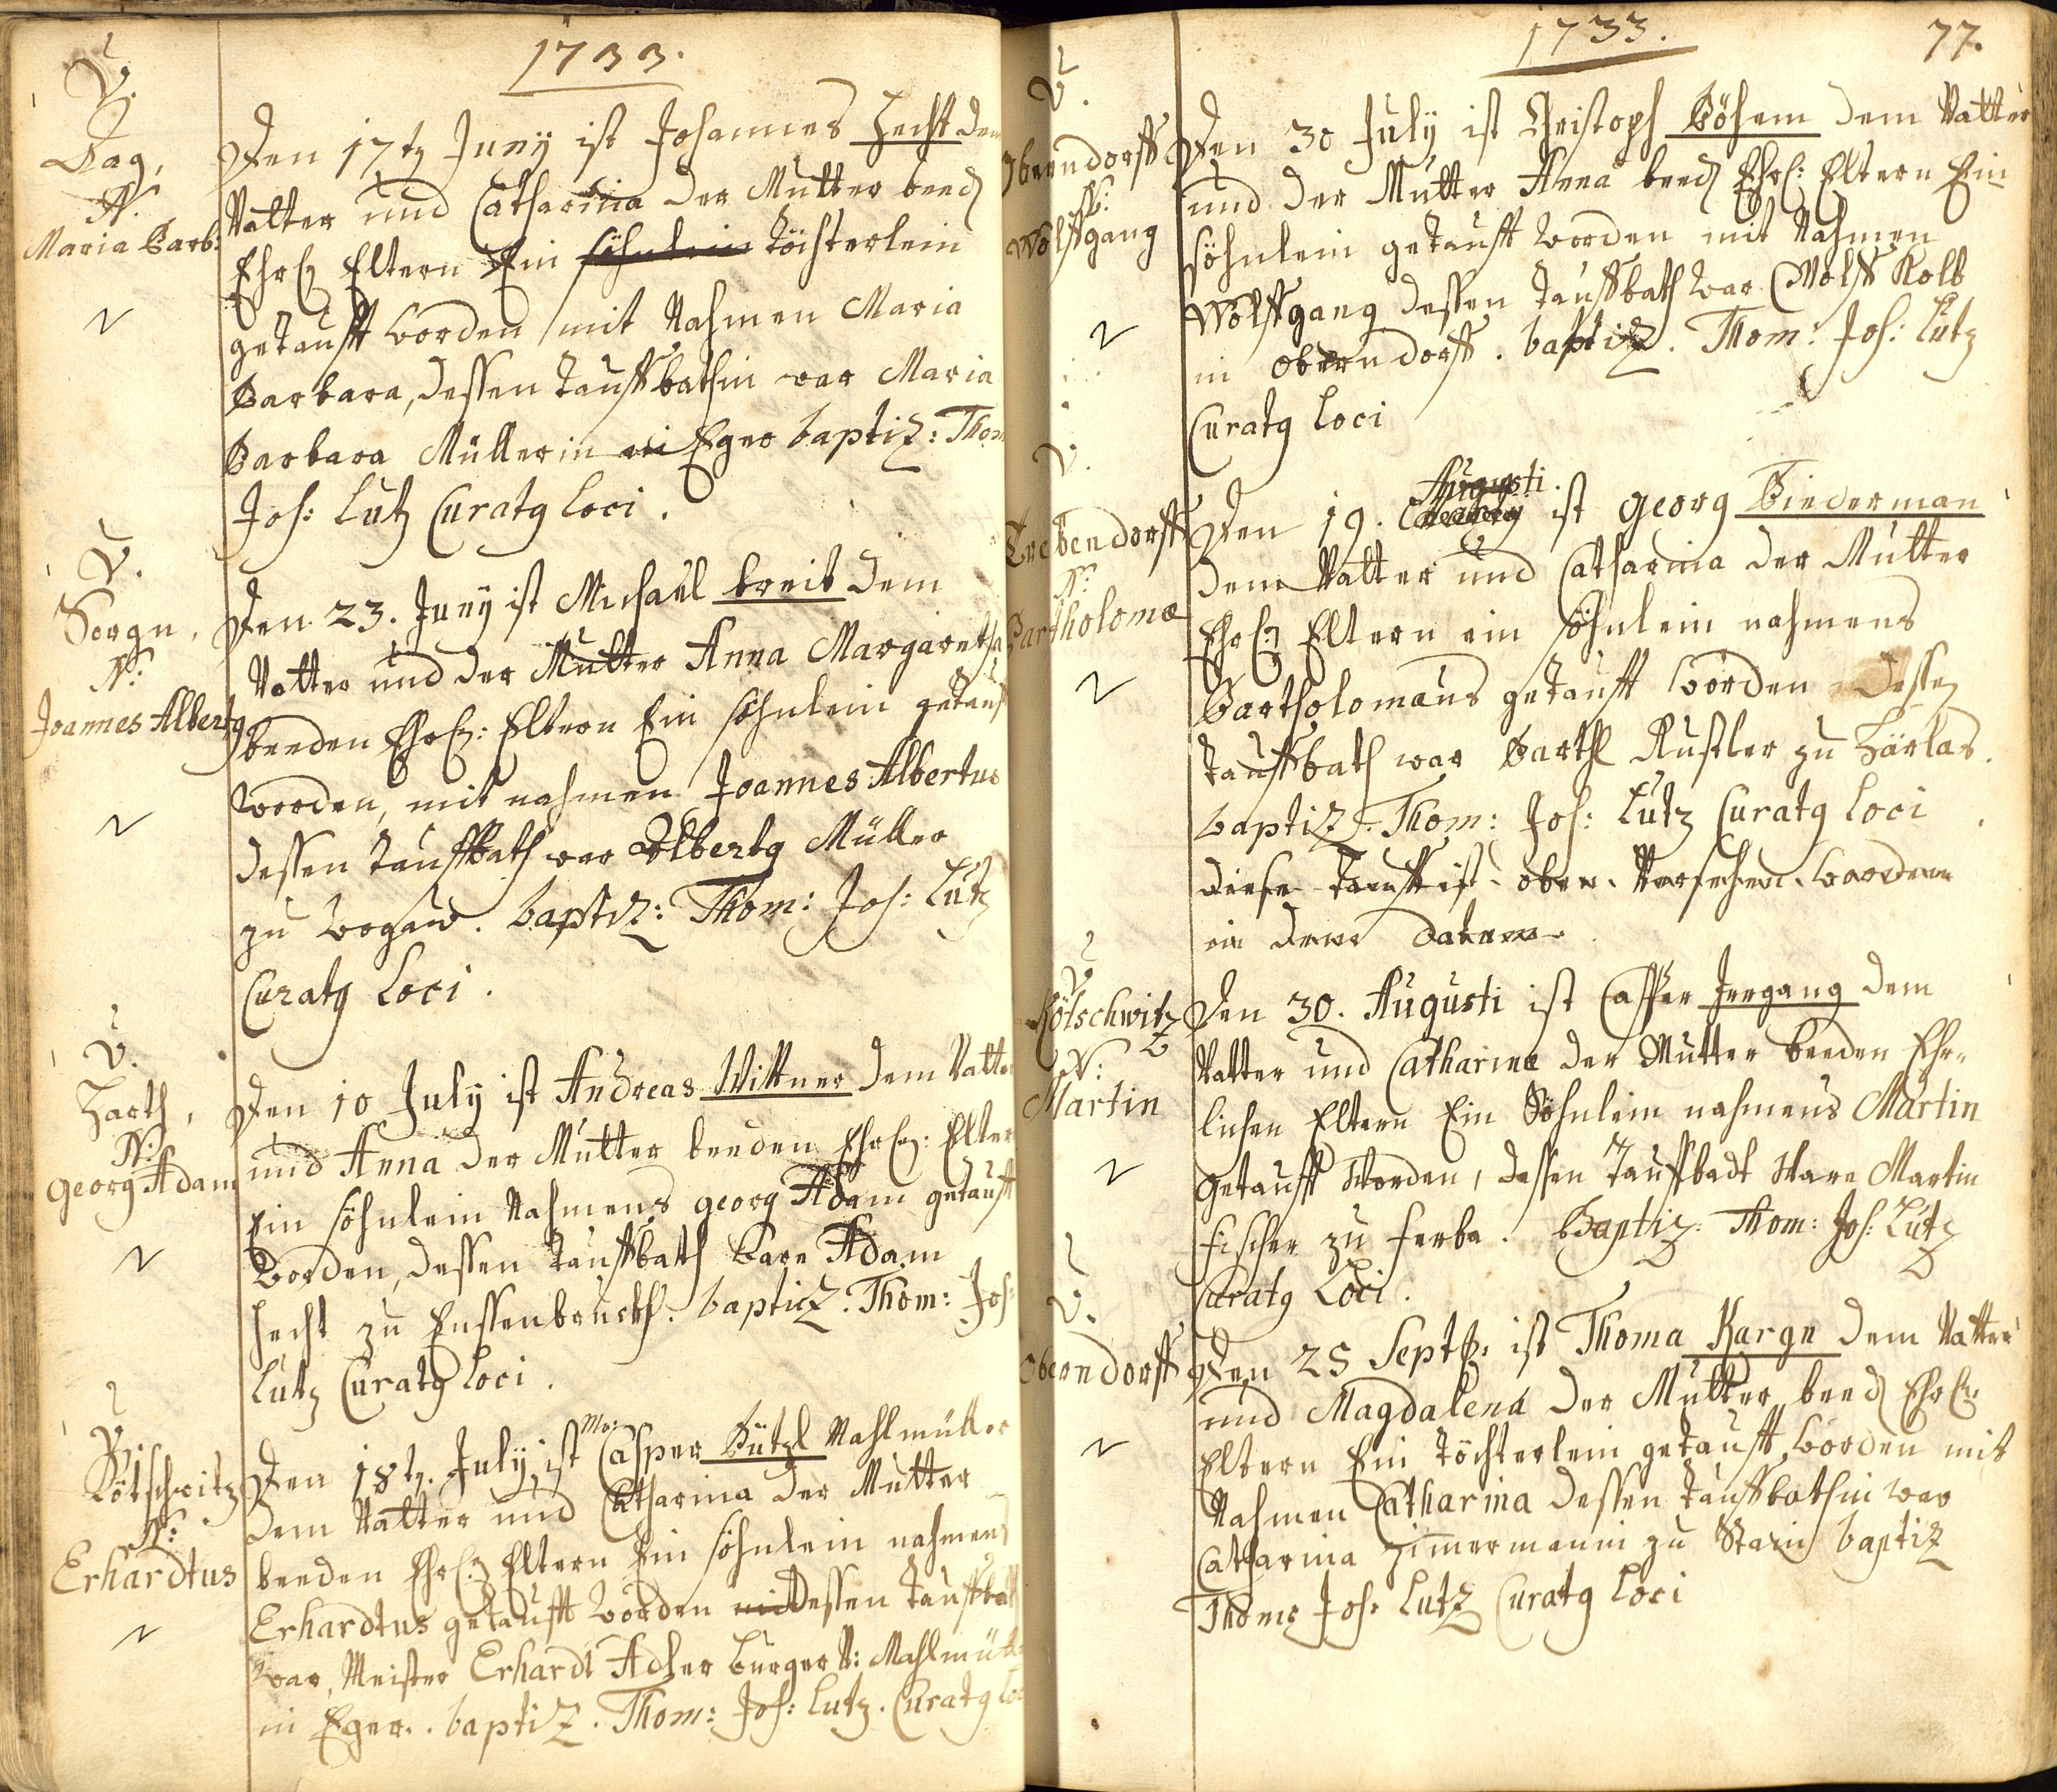 1733.
V.
Aag,
N.
Maria Barb:
Den 17tg Juny ist Johannes Hecht dem
Vatter und Catharina der Mutter beed
Ehrl: Eltern Ein söhnlein töchterlein
getaufft worden mit Nahmen Maria
Barbara, dessen tauffbathin war Maria
Barbara Müllerin Eger baptiz: Thom
Joh: Lutz Curatg loci.
V.
Sorgn,
N:
Joannes Albertg
Den 23. Juny ist Michael breit dem
Vatter und der Mutter Anna Margaretha
beeden Ehrl: Eltern Ein söhnlein getauf
worden, mit nahmen Joannes Albertus
dessen tauffbath war Albertg Müller
zu baptiz: Thom: Joh: Lutz
Curatg Loci.
V.
Harth,
N:
Georg Adam
Den 10 July ist Andreas Wittner dem Vatter
und Anna der Mutter beeden Ehrl: Elter
Ein söhnlein Nahmens georg Adam getaufft
worden, dessen tauffbath ware Adam
hecht zu baptiz. Thom: Joh:
Lutz Curatg loci.
V.
Kötschwitz
N:
Erhardtus
Den 18tg. July ist Mr: Casper Bützl Mahlmüller
dem Vatter und Catharina der Mutter
beeden Ehrl: Eltern Ein söhnlein nahmens
Erhardtus getaufft worden dessen tauffbath
war, Meister Erhardt Adler burger V: Mahlmüll
in Eger. baptiz. Thom: Joh: Lutz. Curatg loc
1733.
77.
V.
Oberndorff
N:
Wolffgang
Den 30 July ist Christoph Böhem dem Vatter
und der Mutter Anna beed Ehrl: Eltern Ein
söhnlein getaufft worden mit Nahmen
Wolffgang dessen tauffbath war Wolff Kolb
in oberndorff. baptiz. Thom: Joh: Lutz
Curatg loci
V.
Trebendorff
N:
Bartholomæ
Augusti.
Den 19. ist georg Biederman
dem Vatter und Catharina der Mutter
Ehrl: Eltern ein söhnlein nahmens
Bartholomæus getaufft worden dessen
tauffbath war Barthl Rustler zu Härlas.
baptiz. Thom: Joh: Lutz Curatg loci
diese tauff ist oben Versehen worden
in dem datum.
V.
Kötschwitz
N:
Martin
Den 30. Augusti ist Casper Irrgang dem
Vatter und Catharina der Mutter beeden Ehr-
lichen Eltern Ein Söhnlein nahmens Martin
getaufft Worden, dessen Tauffbadt Ware Martin
fischer zu ferba. Baptiz. Thom: Joh: Lutz
Curatg Loci.
V.
Oberndorff
Den 25 Septb: ist Thoma Kargn dem Vatter
und Magdalena der Mutter beed Ehrl:
Eltern Ein töchterlein getaufft worden mit
Nahmen Catharina dessen tauffbathin war
Catharina Zimmermanin zu baptiz
Thoms Joh: Lutz Curatg loci